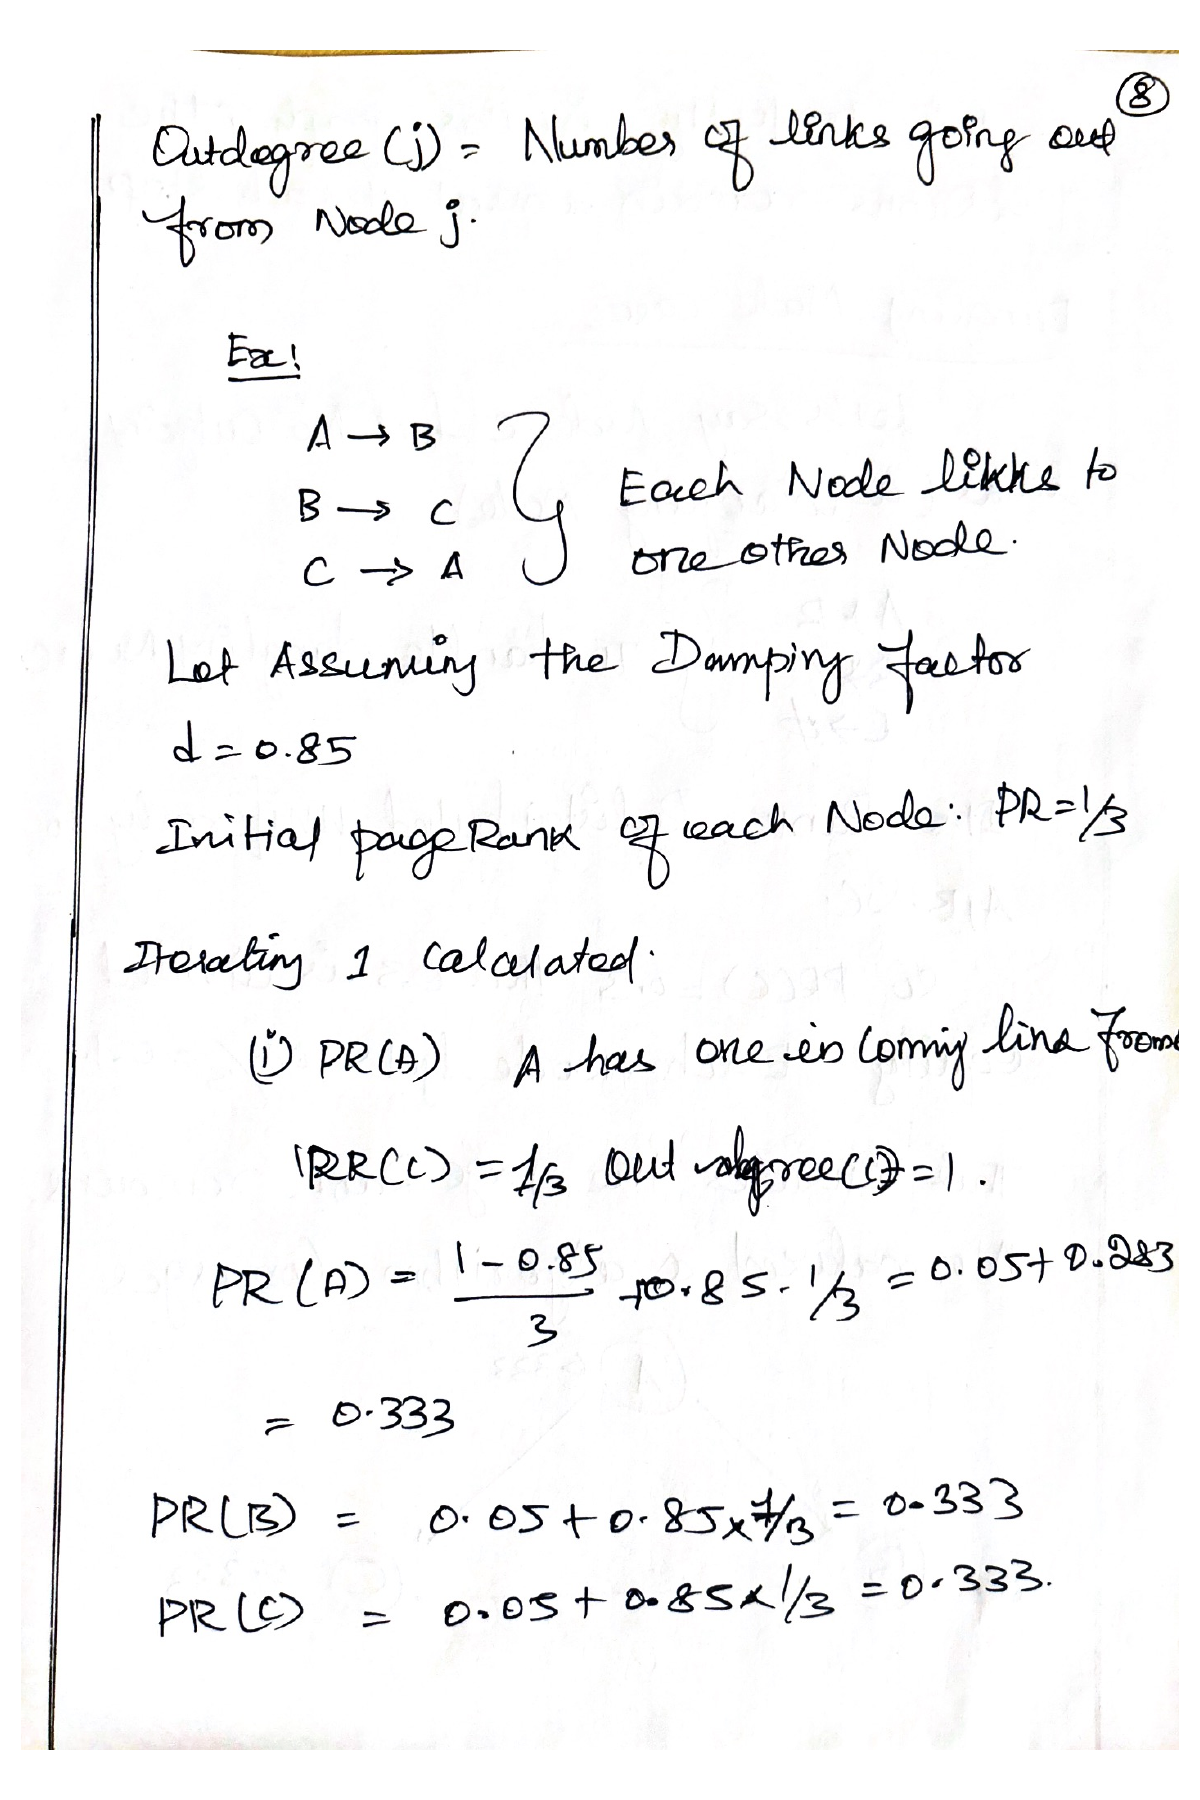 8
Outdegree (j) = Number of links going out
from Node j.
Ex!
A → B
B → C
C → A
Each Node likks to
one other Node.
Let Assuming the Damping factor
d = 0.85
Initial pageRank of each Node: PR = 1/3
Iterating 1 calculated.
(i) PR(A) A has one in coming line from
PR(C) = 1/3 out degree(C) = 1.
PR(A) = (1 - 0.85)/3 + 0.85 . 1/3 = 0.05 + 0.283
= 0.333
PR(B) = 0.05 + 0.85 x 1/3 = 0.333
PR(C) = 0.05 + 0.85 x 1/3 = 0.333.